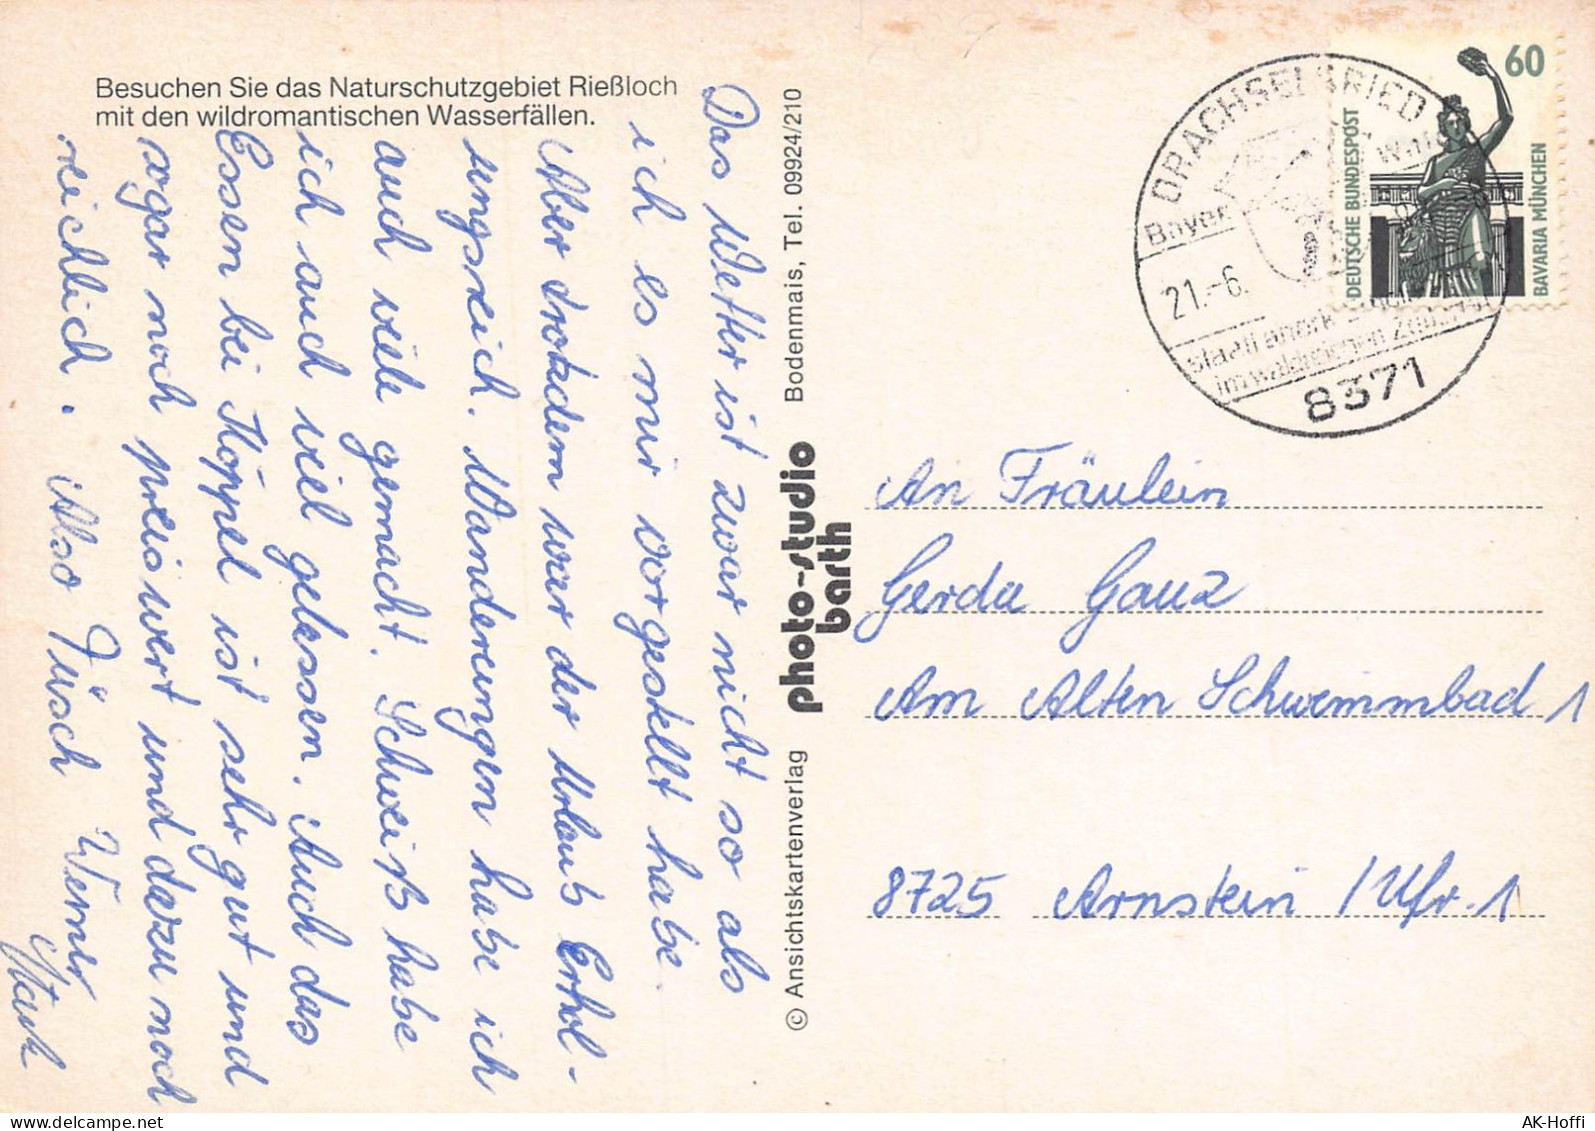 Besuchen Sie das Naturschutzgebiet Rießloch
mit den wildromantischen Wasserfällen.
Das Wetter ist zwar nicht so als
ich es mir vorgestellt habe.
Aber trotzdem war der Urlaub Erhol-
ungsreich. Wanderungen habe ich
auch viele gemacht. Schweiß habe
ich auch viel gelassen. Auch das
Essen bei Köppel ist sehr gut und
sogar noch preiswert und dazu noch
reichlich. Also Tüsch Werner
© Ansichtskartenverlag
photo-studio
barth
Bodenmais, Tel. 09924/210
DRACHSELSRIED
Bayer.
21.-6.
staatl anerk
8371
60
DEUTSCHE BUNDESPOST
BAVARIA MÜNCHEN
An Fräulein
Gerda Gauz
Am Alten Schwimmbad 1
8725 Arnstein / Ufr. 1
AK-Hoffi